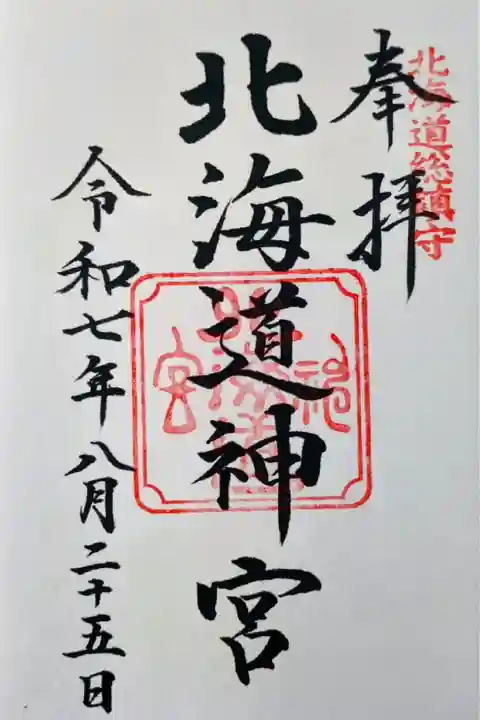 北海道総鎮守
奉拝
北海道神宮
北海道神宮
令和七年八月二十五日